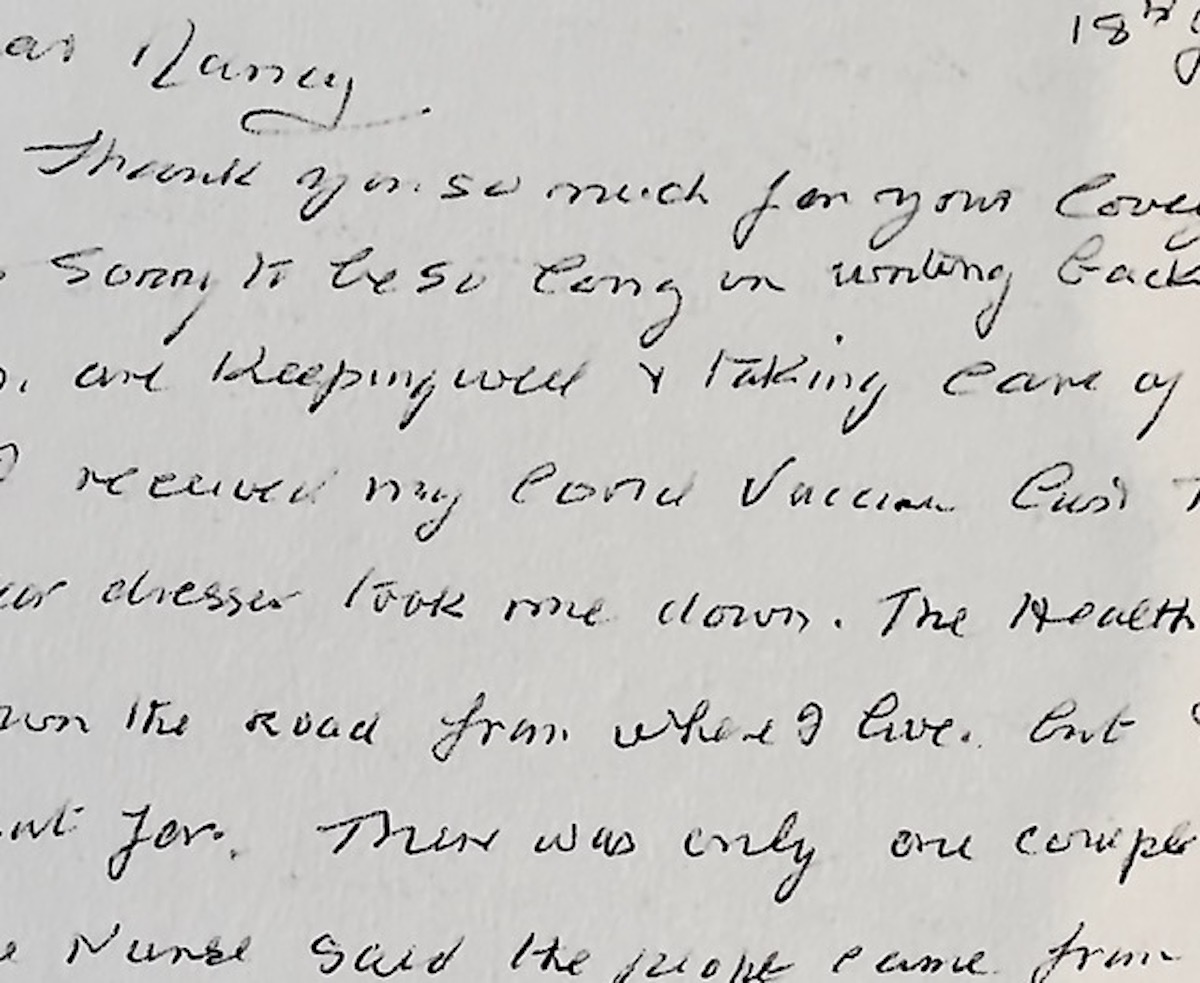 18th
ar Nancy
Thank you so much for your lovely
Sorry to be so long in writing back
are Keeping well & taking care of
I received my Covid Vaccine last
dresser took me down. The Health
own the road from where I live. but
for. There was only one couple
Nurse said the people came from